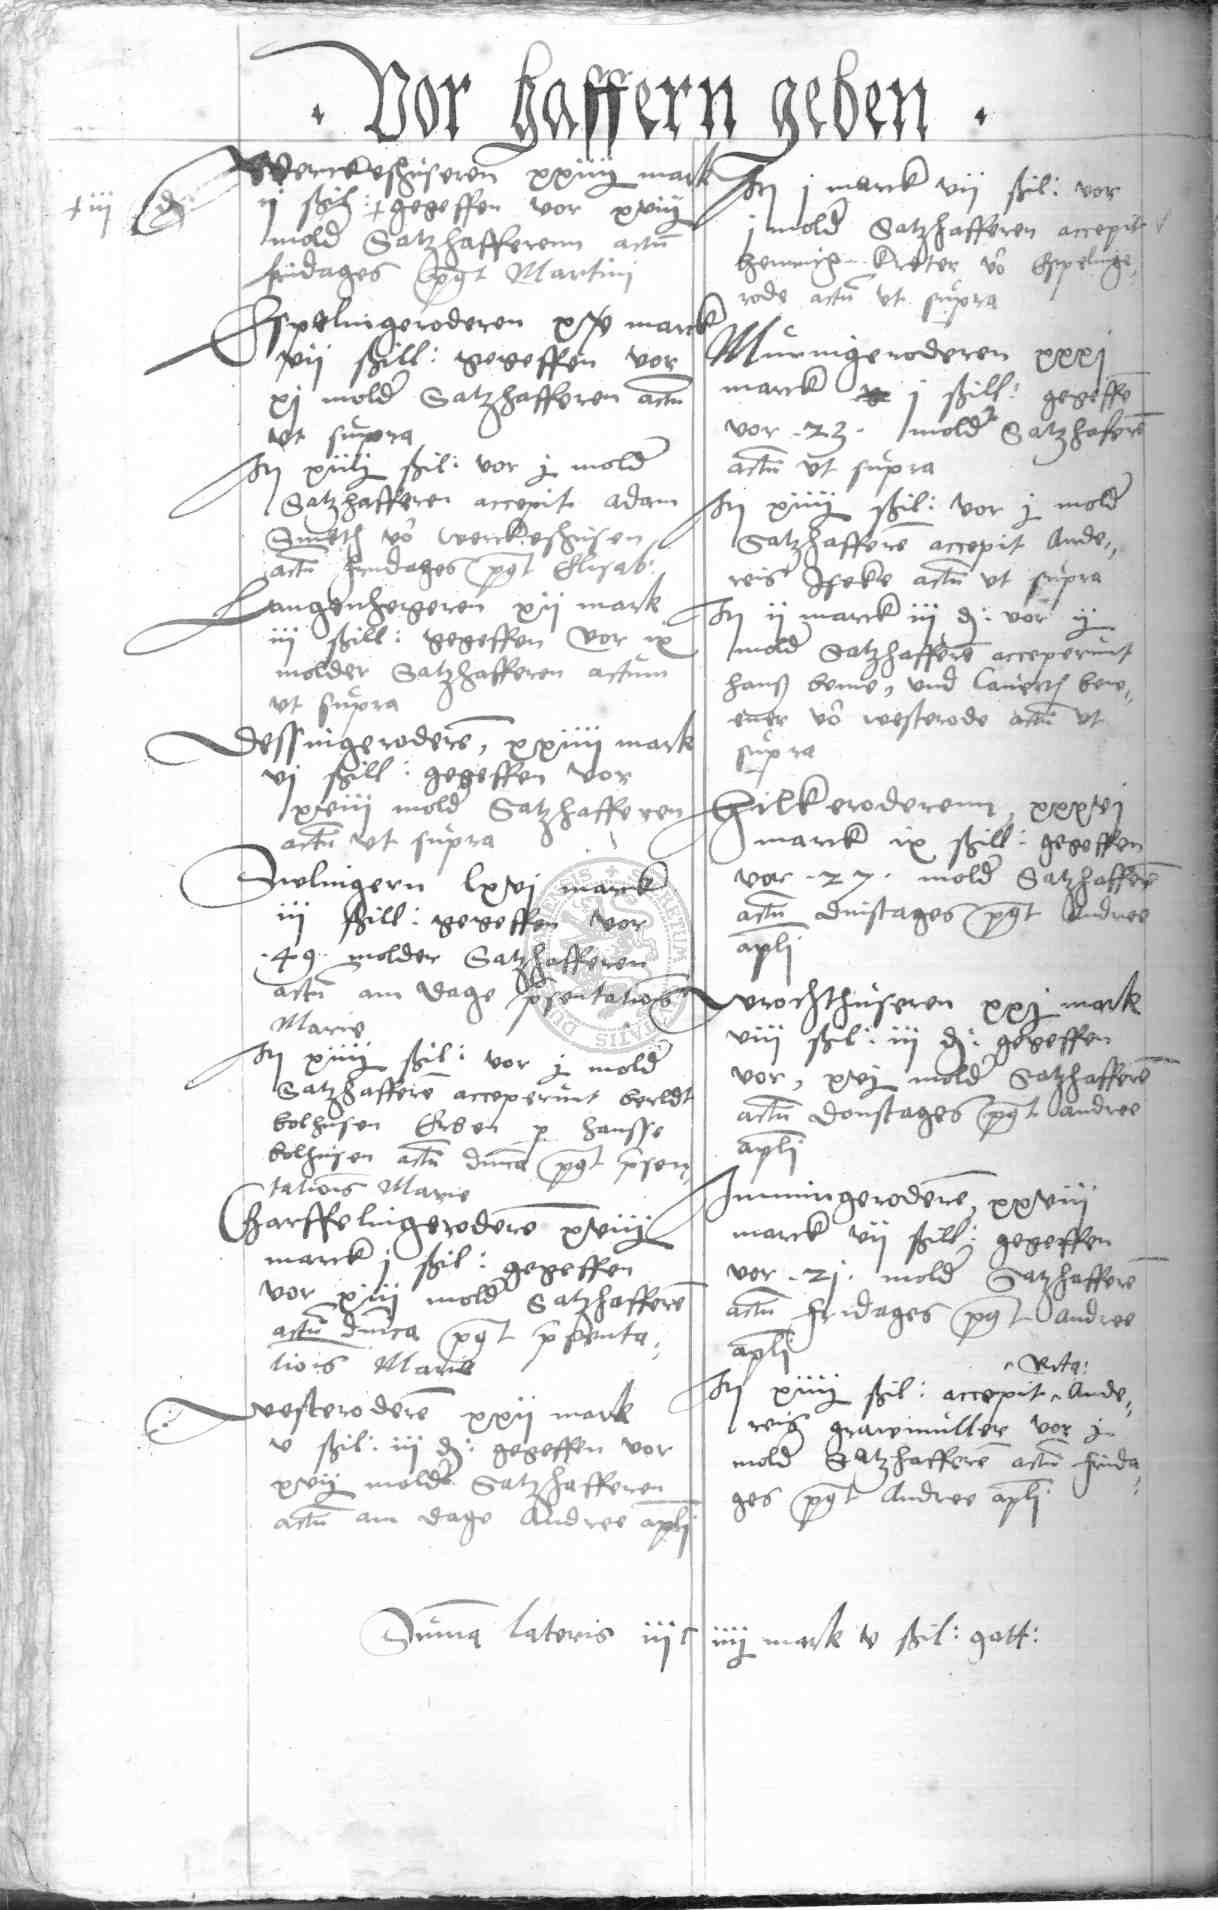 Vor haffern geben
Werckeshuseren xxiiij mark
+ iij d
ij ßil: + gegeffen vor xviij
mold Satzhafferenn actū
fridages pꝰt Martini
Espelingeroderen xv marck
vij ßill: gegeffen vor
xj mold Satzhafferen actū
vt supra
Itȝ xiiij ßil: vor j mold
Satzhafferen accepit adam
Smeth vō werckeshusen
actū fridages pꝰt Elisab:
Langenhegeren xij mark
iij ßill: gegeffen vor ix
molder Satzhafferen actum
vt supra
Dessingeroderē, xxiiii mark
vj ßill: gegeffen vor
xviii mold Satzhafferen
actū vt supra
Sulingern lxvj marck
iij ßill: gegeffen vor
.49. molder Satzhafferen
actū am dage p̄sentatiōis
Marie
Itȝ xiiij ßil: vor j mold
Satzhafferē acceperunt berldt
bolhusen Erben p hansse
bolhusen actū dn̄ica pꝰt p̄sen,,
tatiōis Marie
Charffelingeroderē xviij
marck j ßil: gegeffen
vor xiij mold Satzhafferē
actū dn̄ica pꝰt p̄senta,,
tiōis Marie
Westeroderē xxij mark
v ßil: iij d: gegeffen vor
xvij mold Satzhafferen
actū am dage Andree apl̄i
Itȝ j marck vij ßil: vor
j mold Satzhafferen accepit
henrich kreter vō Espelinge,,
rode actū vt supra
Muningeroderen xxxj
marck j ßill: gegeffē
vor .23. mold Satzhaferē
actū vt supra
Itȝ xiiij ßil: vor j mold
Satzhafferē accepit Ande,,
reis Iseke actū vt supra
Itȝ ij marck iij d: vor ij
mold Satzhafferē acceperunt
hanß vnd bewe,,
ener vō westerode actū vt
supra
Hilkeroderenn, xxxvj
marck ix ßill: gegeffen
vor .27. mold Satzhafferē
actū dinstages pꝰt Andree
apl̄i
Wrochthuseren xxj mark
viii ßil: iii d: gegeffen
vor, xvj mold Satzhafferē
actū donstages pꝰt andree
apl̄i
Immingeroderē, xxviii
marck vij ßill: gegeffen
vor .21. mold Satzhafferē
actū fridages pꝰt andree
apl̄i
Itȝ xiiij ßil: accepit Ande,,
reis gravemuller vor j
mold Satzhafferē actū frida,,
ges pꝰt Andree apl̄i
Sum̄a lateris iijC iiij mark v ßil: gott: